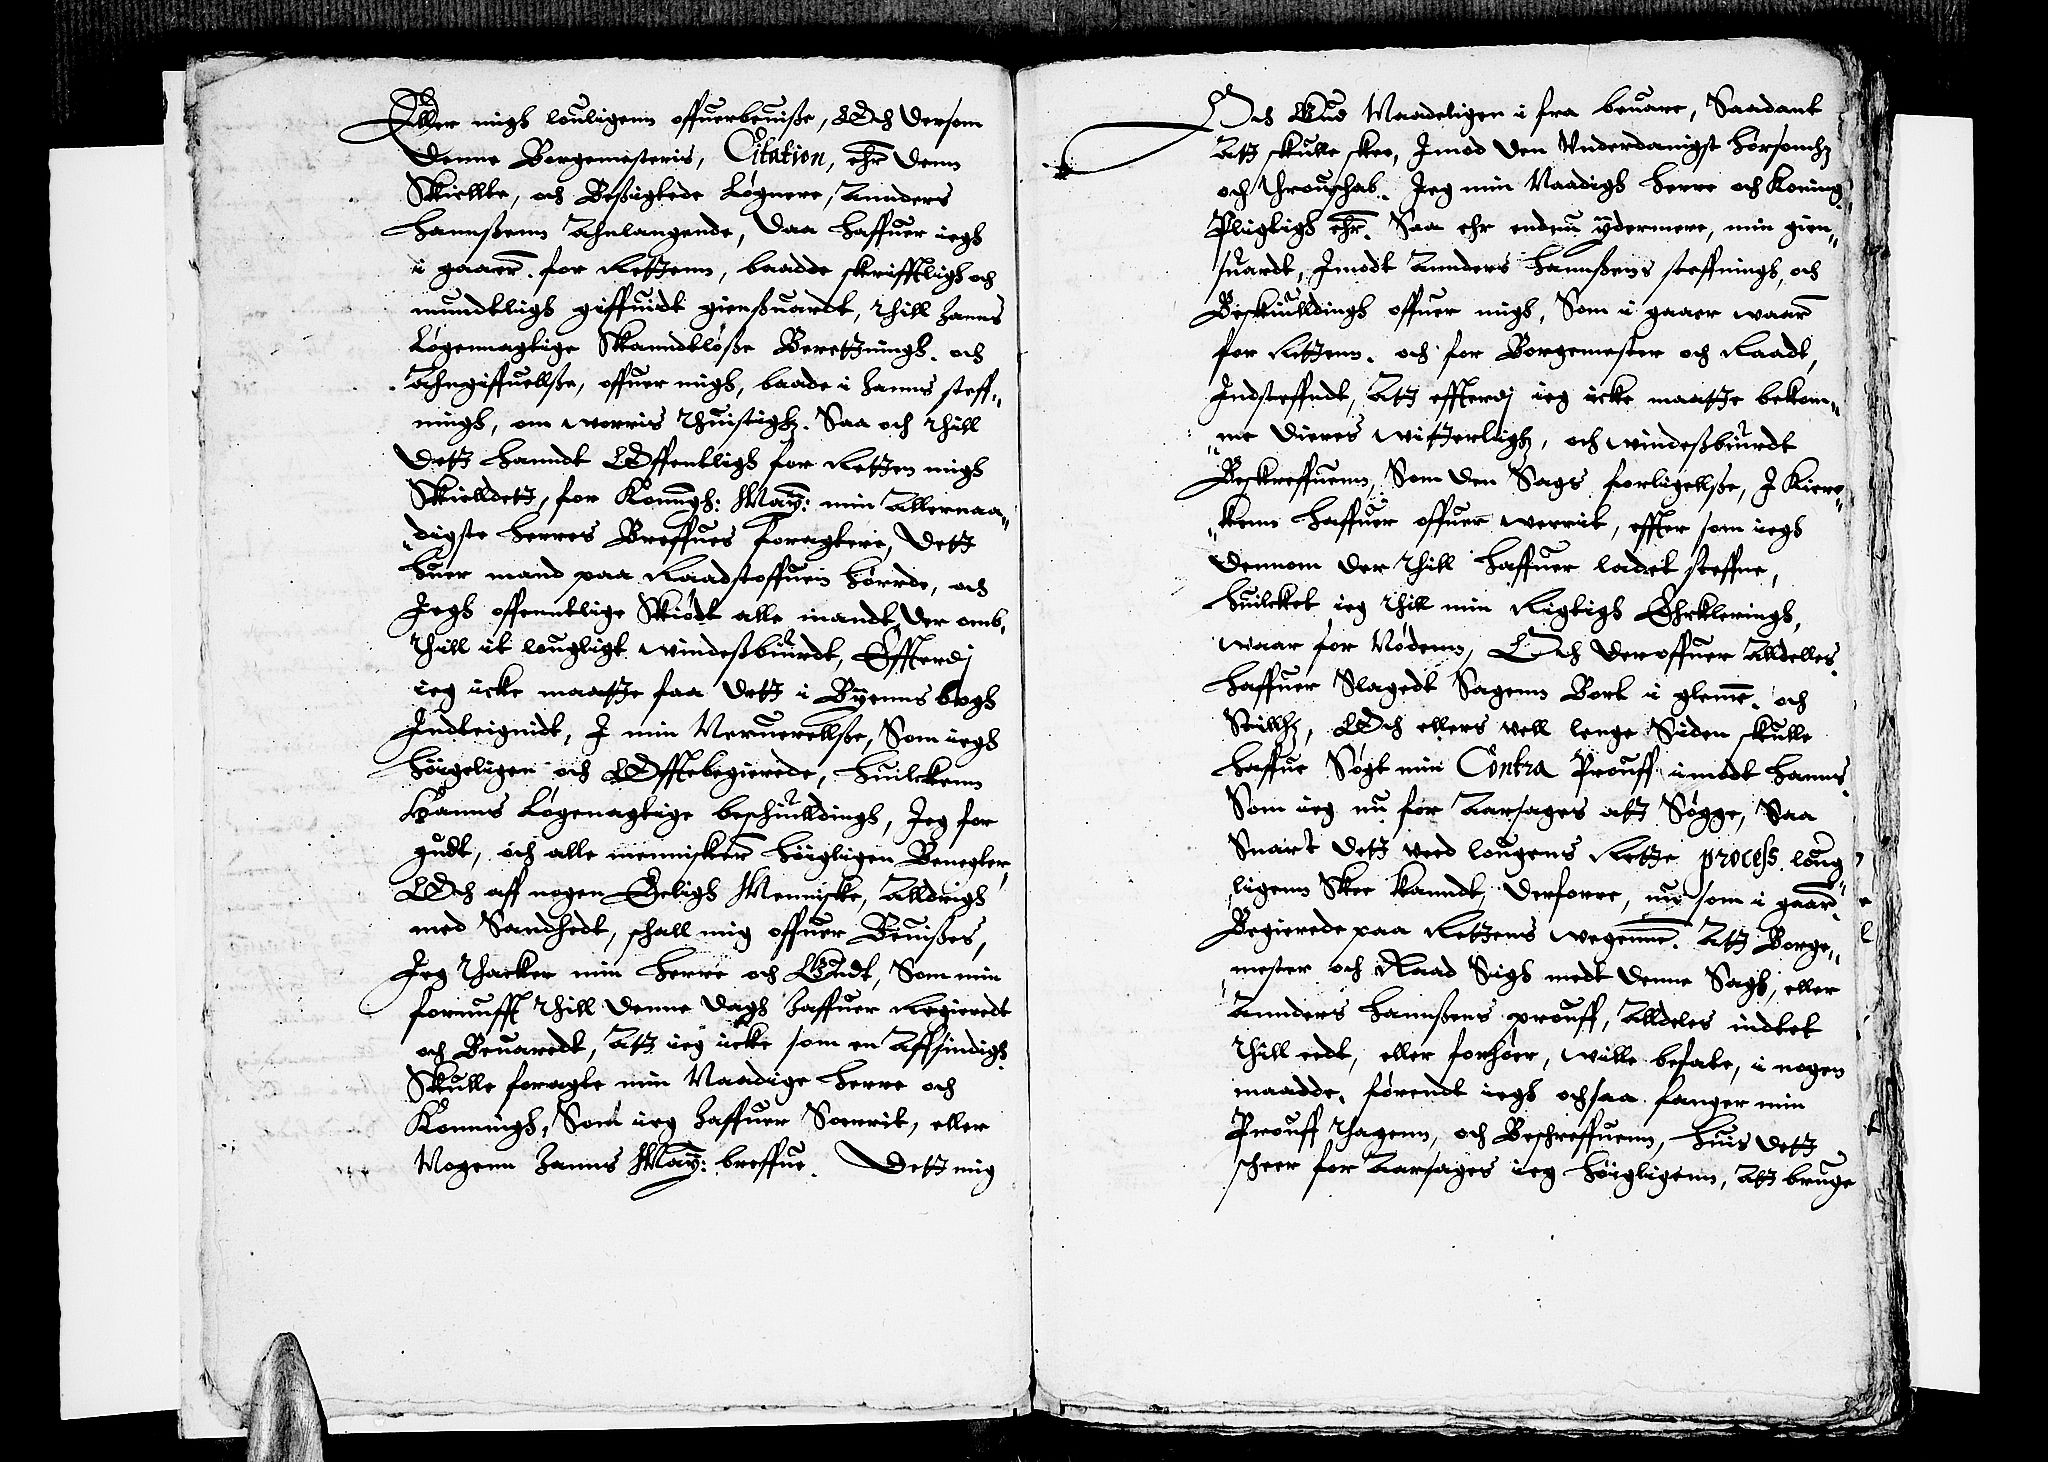 Eller migh louligenn offuerbeuiße, Och dersom
denne Borgemesteris, Citation, ehr denn
Skiellte, och Besigtede Løgnere, Annders
Hannßenn Ahnlangende, Daa haffuer iegh
i gaaer. for Retzenn, baadde skrifftligh och
mundtligh giffuidt gienßuardt, thill hanns
Løgennagtige Skanndtløße Beretzningh. och
Ahngiffuellße, offuer migh, baade i hanns steff-
ningh, om worris Thuistigh. Saa och thill
Detz hanndt Offentligh for Retzen migh
Skielldetz, for Konngh: May: min Allernaa-
digste Herres Breffues foragtere, Detz
huer mand paa Raadstoffuen hørrde, och
Jegh offenntlige Skiødt alle mandt der omb,
thill it lougligt windeßbiurdt, Effterdj
ieg icke maatze faa detz i Byenns bogh
Indteignidt, I min Neruerellße, Som iegh
høigeligen och Offtebegierede, huilckenn
Hanns Løgenagtige beschiulldingh, Jeg for
gudt, och alle mennisker høigligen Benegter,
Och aff nogen Erligh Menniske, Alldrigh
med Sandhedt, schall mig offuer Beuißes,
Jeg thacker min Herre och Gudt, Som min
fornufft thill denne dagh haffuer Regieredt
och Beuaredt, Atz ieg icke som en Affsindigh
Skulle foragte min Naadige Herre och
Konningh, Som ieg haffuer Soerit, eller
Nogenn hanns May: breffue. Detz mig
Och Gud Naadeligen i fra beuare, Saadant
Atz skulle skee, Imod den Vnderdanigst hørsomh
och throuschab. Jeg min Naadigh Herre och Koning
Pligtigh ehr. Saa ehr endnu ydermere, min gien-
suardt, Imodt Annders Hannßens steffningh, och
Beskiulldingh offuer migh, Som i gaaer waar
for Retzenn. och for Borgemester och Raadt,
Indsteffndt, Atz effterdj ieg icke maatze bekom-
me dieres witzerligh, och windeßbiurdt
Beskreffuenn, Som den Sags forligellße, I Kierc-
kenn haffuer offuer werrit, effter som iegh
dennom der thill haffuer ladet steffne,
huilcket ieg thill min Rigtigh Ehrkleringh,
waar for Nødenn, Och der offuer Alldelles
haffuer Slagedt Sagenn Bort i glemme. och
Stillh, Och ellers vell lenge Siden skulle
haffue Søgt min Contra Prouff imodt hanns
Som ieg nu for Aarsages atz Søgge, Saa
Snart detz ved lougens Retze process. loug-
ligenn Skee kanndt, derforre, nu som i gaar.
Begierede paa Retzens wegenne. Atz Borge-
mester och Raad Sigh medt denne Sagh, eller
Annders Hannßens prouff, Alldeles indtet
thill eedt, eller forhøer, wille befate, i nogen
maadde. førendt iegh ochsaa fanger min
Prouff thagenn, och Beschreffuenn, huis detz
scheer for Aarsages ieg høigligenn, Atz bruge